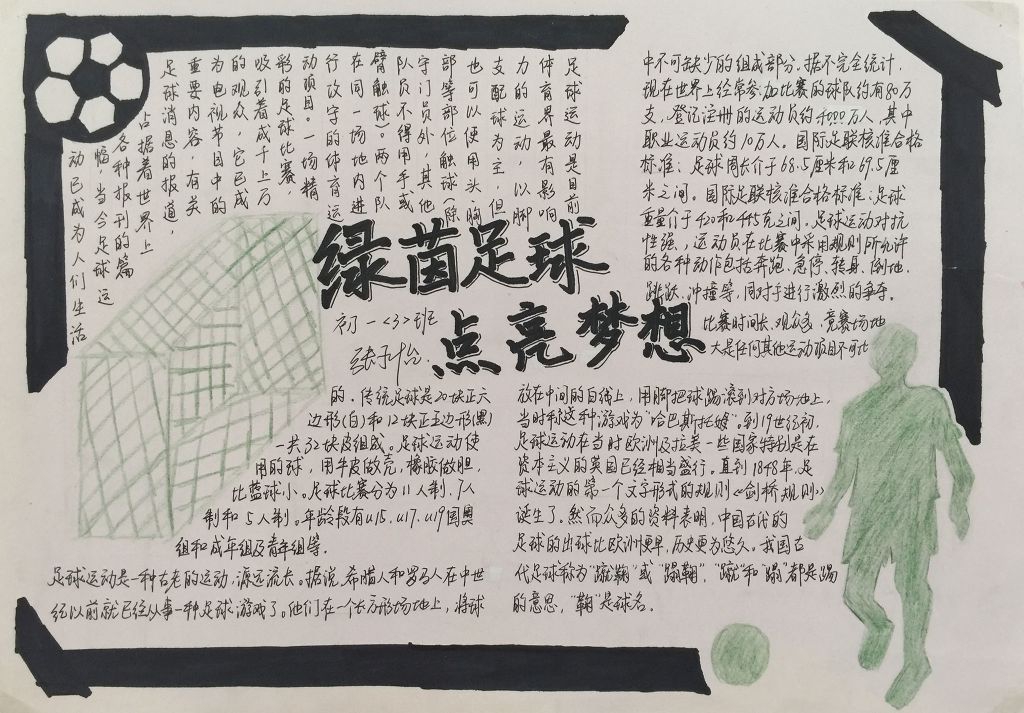 绿茵足球
点亮梦想
初一<3>班
足球运动是目前
体育界最有影响
力的运动，以脚
支配球为主，但
也可以使用头、胸
部等部位触球（除
守门员外，其他
队员不得用手或
臂触球）。两个队
在同一场地内进
行攻守的体育运
动项目。一场精
彩的足球比赛，
吸引着成千上万
的观众，它已成
为电视节目中的
重要内容，有关
足球消息的报道，
占据着世界上
各种报刊的篇
幅，当今足球运
动已成为人们生活
中不可缺少的组成部分。据不完全统计，
现在世界上经常参加比赛的球队约有80万
支，登记注册的运动员约4000万人，其中
职业运动员约10万人。国际足联核准合格
标准：足球周长介于68.5厘米和69.5厘
米之间。国际足联核准合格标准：足球
重量介于420和445克之间。足球运动对抗
性强，运动员在比赛中采用规则所允许
的各种动作包括奔跑、急停、转身、倒地、
跳跃、冲撞等，同对手进行激烈的争夺。
比赛时间长、观众多、竞赛场地
大是任何其他运动项目不可比
的。传统足球是20块正六
边形（白）和12块正五边形（黑）
一共32块皮组成。足球运动使
用的球，用牛皮做壳，橡胶做胆，
比蓝球小。足球比赛分为11人制、7人
制和5人制。年龄段有u15、u17、u19国奥
组和成年组及青年组等。
足球运动是一种古老的运动，源远流长。据说，希腊人和罗马人在中世
纪以前就已经从事一种足球游戏了。他们在一个长方形场地上，将球
放在中间的白线上，用脚把球踢滚到对方场地上，
当时称这种游戏为“哈巴斯托姆”。到19世纪初，
足球运动在当时欧洲及拉美一些国家特别是在
资本主义的英国已经相当盛行。直到1848年，足
球运动的第一个文字形式的规则《剑桥规则》
诞生了。然而众多的资料表明，中国古代的
足球的出球比欧洲更早，历史更为悠久。我国古
代足球称为“蹴鞠”或“蹋鞠”，“蹴”和“蹋”都是踢
的意思，“鞠”是球名。